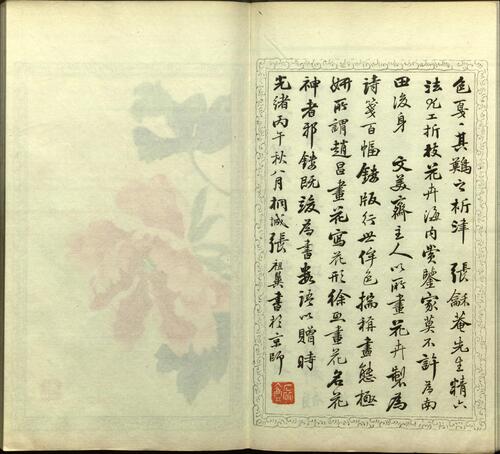 色戞戞其難之析津 張龢菴先生精六
法尤工折枝花卉海内賞鑒家莫不許為南
田後身 文美齋主人以所畫花卉製為
詩箋百幅鏤版行世侔色揣稱盡態極
妍所謂趙昌畫花寫花形徐熙畫花名花
神者邪鏤既竣為書數語以贈時
光緒丙午秋八月桐城張祖翼書於京師